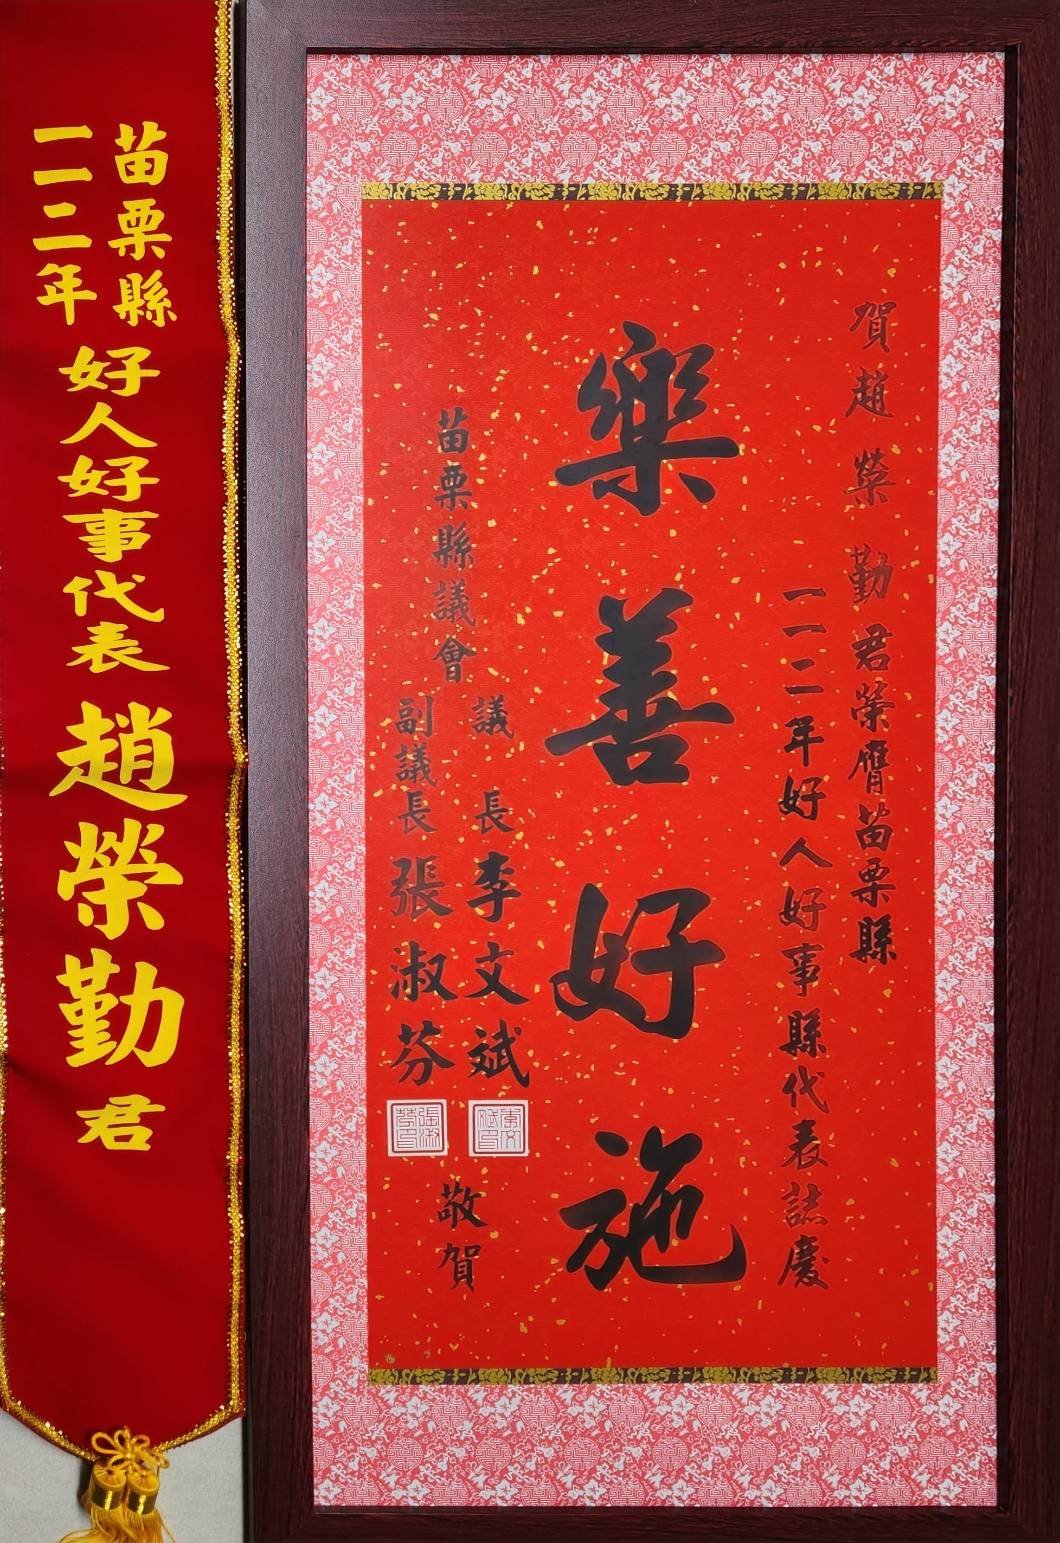 苗栗縣
一一二年
好人好事代表
趙榮勤君
賀趙榮勤君榮膺苗栗縣
一一二年好人好事縣代表誌慶
樂善好施
苗栗縣議會
議長李文斌
副議長張淑芬
敬賀